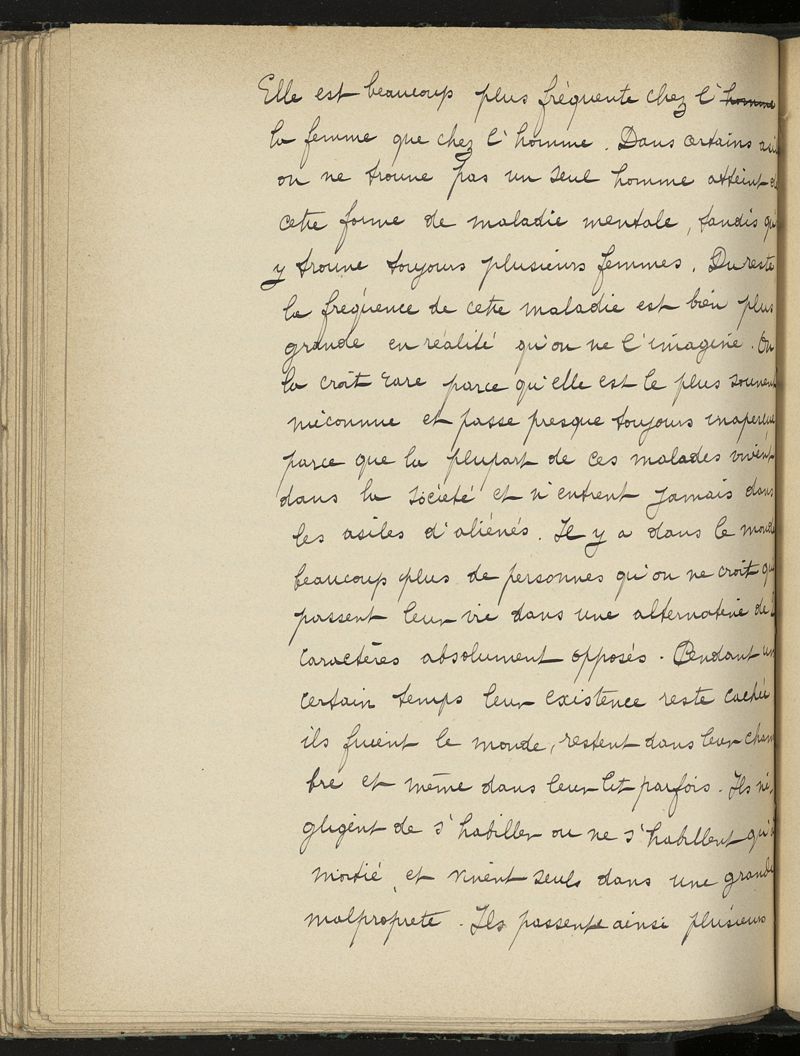 Elle est beaucoup plus fréquente chez l'homme
la femme que chez l'homme. Dans certains asi
on ne trouve pas un seul homme atteint d
cette forme de maladie mentale, tandis qu
y trouve toujours plusieurs femmes. Du reste
la fréquence de cette maladie est bien plus
grande en réalité qu'on ne l'imagine. On
la croit rare parce qu'elle est le plus souvent
méconnue et passe presque toujours inaperçue
parce que la plupart de ces malades vivent
dans la société et n'entrent jamais dans
les asiles d'aliénés. Il y a dans le monde
beaucoup plus de personnes qu'on ne croit qui
passent leur vie dans une alternative de 2
caractères absolument opposés. Pendant un
certain temps leur existence reste cachée
ils fuient le monde, restent dans leur cham
bre et même dans leur lit parfois. Ils né-
gligent de s'habiller ou ne s'habillent qu'à
moitié, et vivent seuls dans une grande
malpropreté. Ils passent ainsi plusieurs